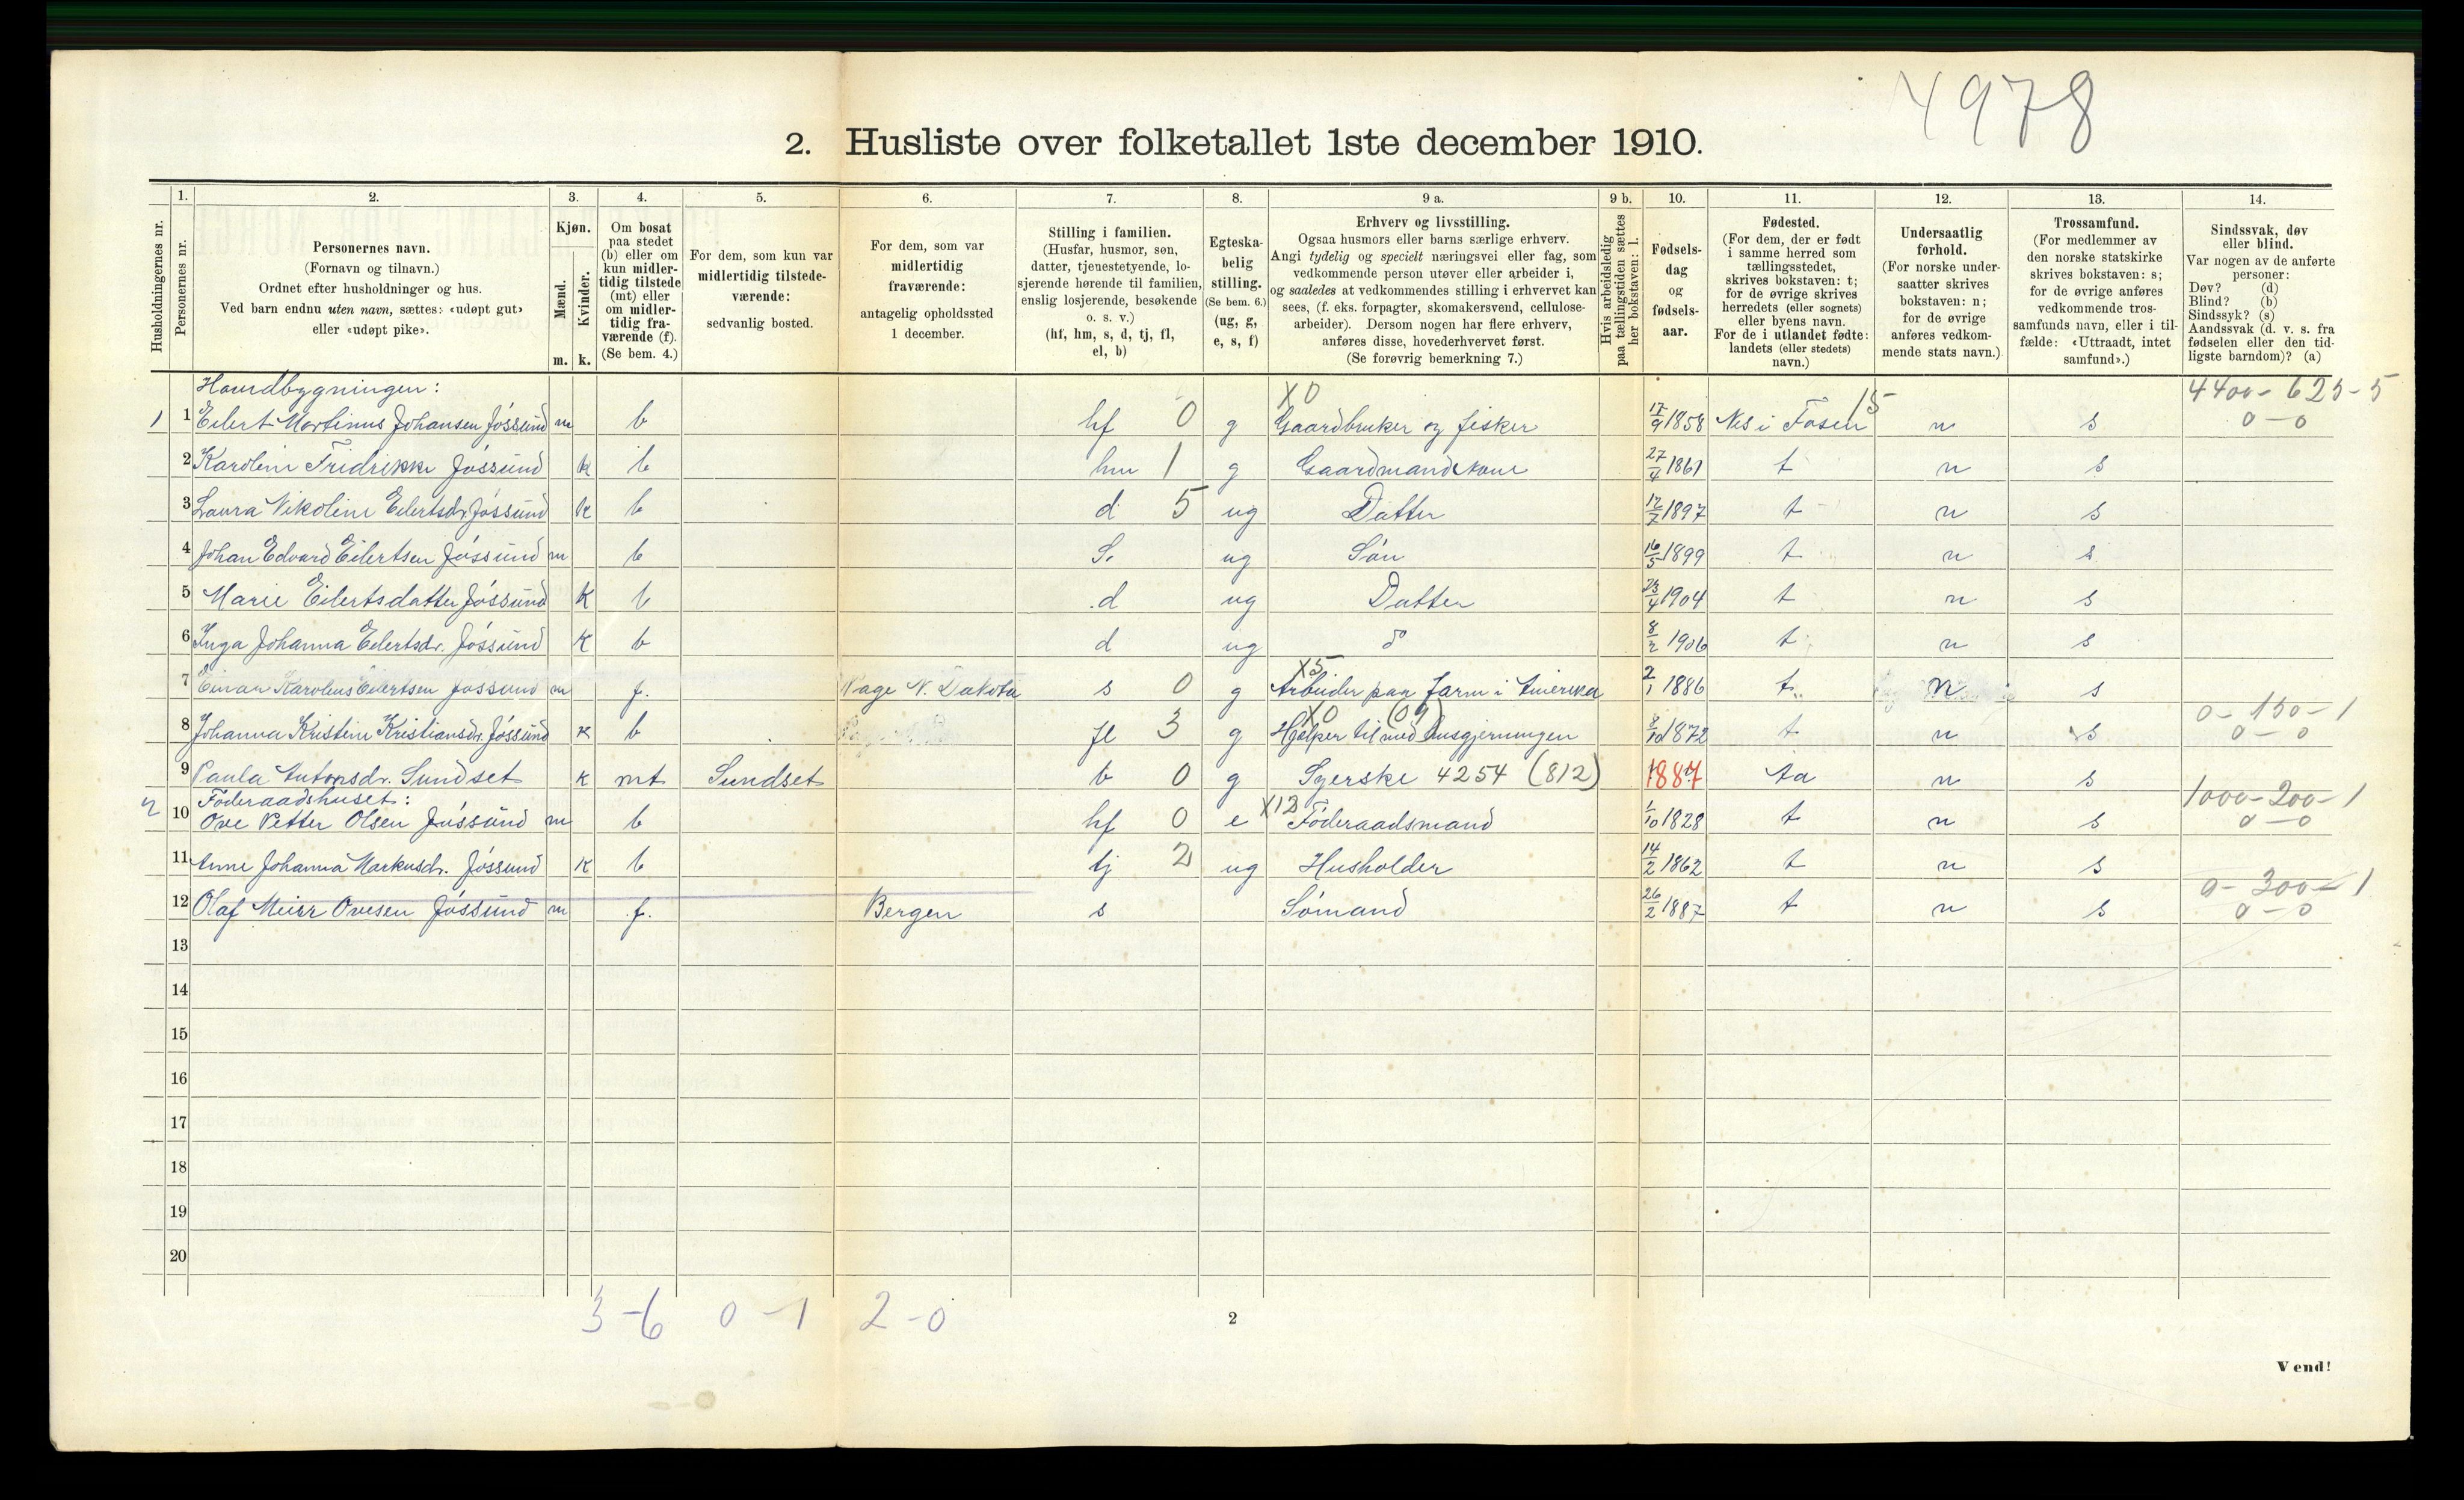 4978
2. Husliste over folketallet 1ste december 1910.
Husholdningernes nr.
1. Personernes nr.
2. Personernes navn.
(Fornavn og tilnavn.)
Ordnet efter husholdninger og hus.
Ved barn endnu uten navn, sættes: «udøpt gut»
eller «udøpt pike».
3. Kjøn.
Mænd. m.
Kvinder. k.
4. Om bosat
paa stedet
(b) eller om
kun midler-
tidig tilstede
(mt) eller
om midler-
tidig fra-
værende (f).
(Se bem. 4.)
5. For dem, som kun var
midlertidig tilstede-
værende:
sedvanlig bosted.
6. For dem, som var
midlertidig
fraværende:
antagelig opholdssted
1 december.
7. Stilling i familien.
(Husfar, husmor, søn,
datter, tjenestetyende, lo-
sjerende hørende til familien,
enslig losjerende, besøkende
o. s. v.)
(hf, hm, s, d, tj, fl,
el, b)
8. Egteska-
belig
stilling.
(Se bem. 6.)
(ug, g,
e, s, f)
9 a. Erhverv og livsstilling.
Ogsaa husmors eller barns særlige erhverv.
Angi tydelig og specielt næringsvei eller fag, som
vedkommende person utøver eller arbeider i,
og saaledes at vedkommendes stilling i erhvervet kan
sees, (f. eks. forpagter, skomakersvend, cellulose-
arbeider). Dersom nogen har flere erhverv,
anføres disse, hovederhvervet først.
(Se forøvrig bemerkning 7.)
9 b. Hvis arbeidsledig
paa tællingstiden sættes
her bokstaven: l.
10. Fødsels-
dag
og
fødsels-
aar.
11. Fødested.
(For dem, der er født
i samme herred som
tællingsstedet,
skrives bokstaven: t;
for de øvrige skrives
herredets (eller sognets)
eller byens navn.
For de i utlandet fødte:
landets (eller stedets)
navn.)
12. Undersaatlig
forhold.
(For norske under-
saatter skrives
bokstaven: n;
for de øvrige
anføres vedkom-
mende stats navn.)
13. Trossamfund.
(For medlemmer av
den norske statskirke
skrives bokstaven: s;
for de øvrige anføres
vedkommende tros-
samfunds navn, eller i til-
fælde: «Uttraadt, intet
samfund».)
14. Sindssvak, døv
eller blind.
Var nogen av de anførte
personer:
Døv? (d)
Blind? (b)
Sindssyk? (s)
Aandssvak (d. v. s. fra
fødselen eller den tid-
ligste barndom)? (a)
Houedbygningen: X0 15 4400-625-5
1 1 Eilert Martinus Johansen Jóssund m b hf 0 g Gaardbruker og fisker 17/9 1858 Nes i Fosen n s 0-0
2 Karoline Fridrikke Jóssund k b hm 1 g Gaardmandskone 27/4 1861 t n s
3 Laura Nikoline Eilertsdr. Jóssund k b d 5 ug Datter 12/7 1897 t n s
4 Johan Edvard Eilertsen Jóssund m b S. ug Són 16/5 1899 t n s
5 Marie Eilertsdatter Jóssund k b d ug Datter 23/4 1904 t n s
6 Inga Johanna Eilertsdr. Jóssund k b d ug do 8/2 1906 t n s
X5
7 Einar Karolius Eilertsen Jossund m f. Page N. Dakota s 0 g Arbeider paa farm i Amerika 2/1 1886 t n s
X0 (09) 0-150-1
8 Johanna Kristine Kristiansdr. Jóssund k b fl 3 g Hjelper til med husgjerningen 8/10 1872 t n s 0-0
9 Paula Antonsdr. Sundset k mt Sundset b 0 g Syerske 4254 (812) 1887 ta n s
Föderaadshuset: X12 1000-200-1
2 10 Ove Petter Olsen Jóssund m b hf 0 e Föderaadsmand 1/10 1828 t n s 0-0
11 Anne Johanna Markusdr. Jóssund k b tj 2 ug Husholder 14/2 1862 t n s
0-300-1
12 Olaf Meier Ovesen Jóssund m f. Bergen s Sömand 26/2 1887 t n s 0-0
13
14
15
16
17
18
19
20
3-6 0-1 2-0
2
Vend!